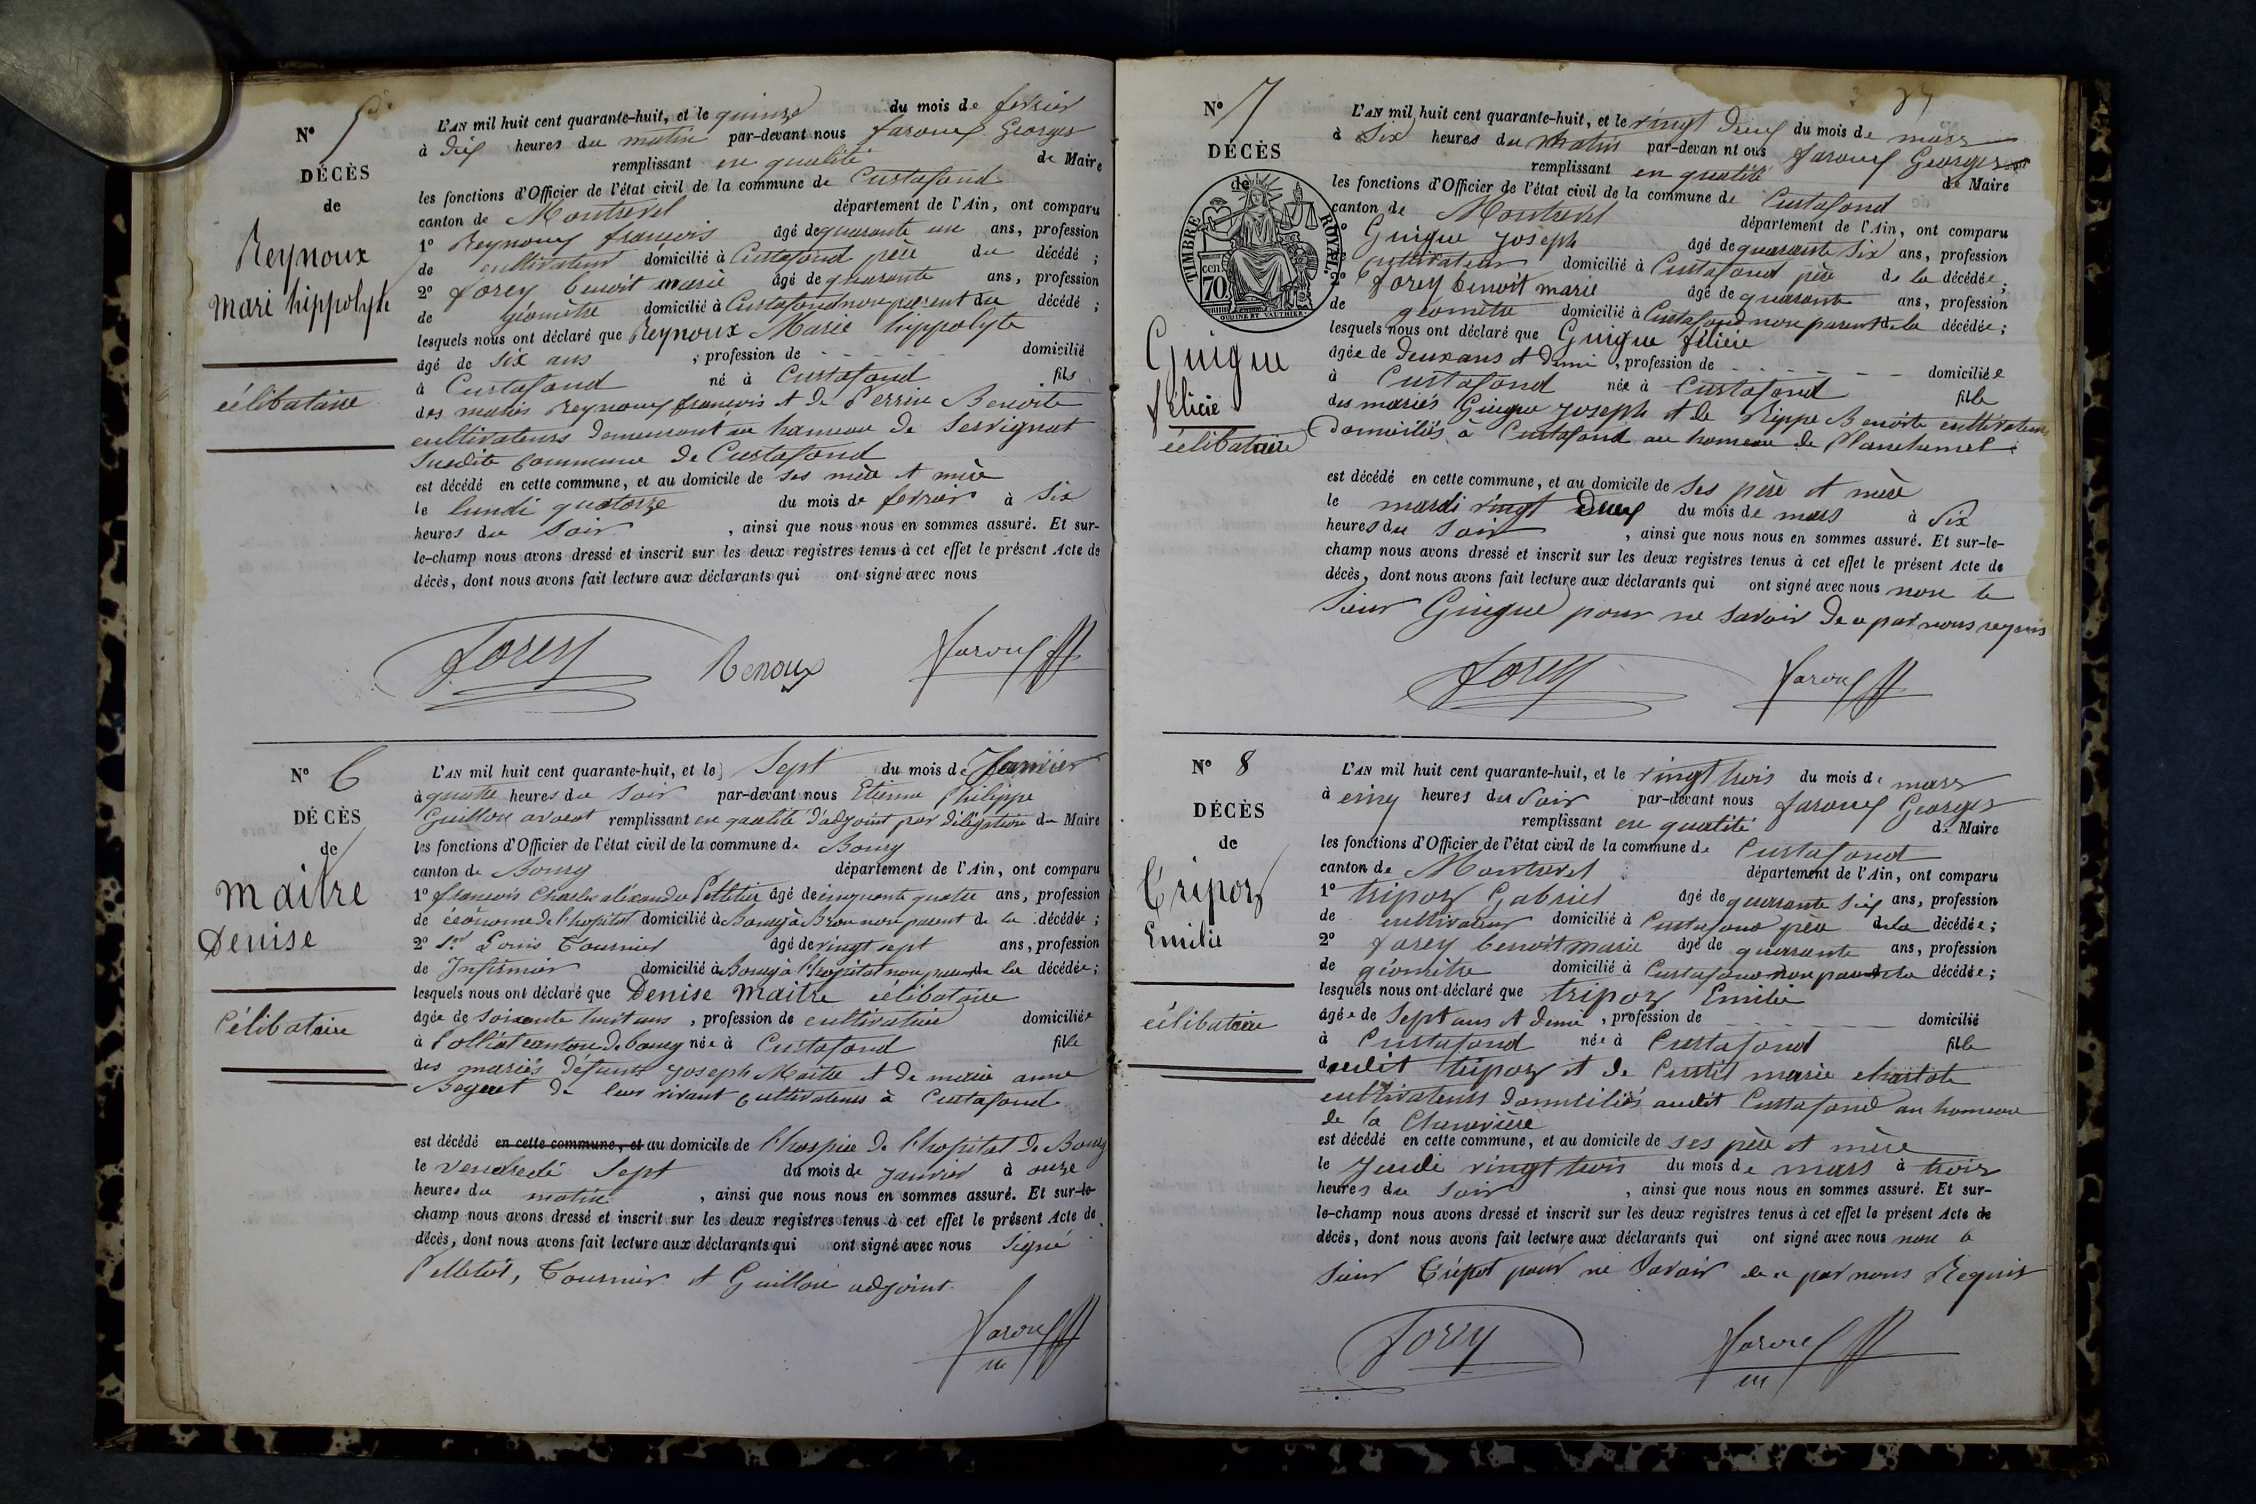 N° 5
DÉCÈS
de
Reynoux
Marie hippolyte
célibataire
L'AN mil huit cent quarante-huit, et le quinze du mois de fevrier
à dix heures du matin par-devant nous faroux Georges
remplissant en qualité de Maire
les fonctions d'Officier de l'état civil de la commune de Curtafond
canton de Montrevel département de l'Ain, ont comparu
1° Reynoux francois âgé de quarante un ans, profession
de cultivateur domicilié à Curtafond père du décédé ;
2° forey benoit marie âgé de quarante ans, profession
de géomètre domicilié à Curtafond non parent du décédé ;
lesquels nous ont déclaré que Reynoux Marie hippolyte
âgé de six ans , profession de domicilié
à Curtafond né à Curtafond fils
des mariés Reynoux francois et de Perrin Benoite
cultivateurs demeurant au hameau de Servignat
susdite commune de Curtafond
est décédé en cette commune, et au domicile de ses père et mère
le lundi quatorze du mois de fevrier à six
heures du soir , ainsi que nous nous en sommes assuré. Et sur-
le-champ nous avons dressé et inscrit sur les deux registres tenus à cet effet le présent Acte de
décès, dont nous avons fait lecture aux déclarants qui ont signé avec nous
forey Renoux faroux
N° 6
DÉCÈS
de
Maitre
Denise
Célibataire
L'AN mil huit cent quarante-huit, et le Sept du mois de Janvier
à quatre heures du soir par-devant nous Etienne Philippe
Guillon avocat remplissant en qualité d'adjoint par délégation de Maire
les fonctions d'Officier de l'état civil de la commune de Bourg
canton de Bourg département de l'Ain, ont comparu
1° francois Charles aléxandre Pelletier âgé de cinquante quatre ans, profession
de économe de l'hopital domicilié à Bourg à Brou non parent de la décédée ;
2° Sr Louis Tournier âgé de vingt sept ans, profession
de Infirmier domicilié à Bourg à l'hopital non parent de la décédée ;
lesquels nous ont déclaré que Denise Maitre célibataire
âgée de soixante huit ans , profession de cultivatrice domiciliée
à Polliat canton de bourg née à Curtafond fille
des mariés défunts joseph Maitre et de marie anne
de leur vivant cultivateurs à Curtafond
est décédé en cette commune, et au domicile de l'hospice de l'hopital de Bourg
le vendredi Sept du mois de janvier à onze
heures du matin , ainsi que nous nous en sommes assuré. Et sur-le-
champ nous avons dressé et inscrit sur les deux registres tenus à cet effet le présent Acte de
décès, dont nous avons fait lecture aux déclarants qui ont signé avec nous Signé
Pelletier, Tournier et Guillon adjoint
faroux
N° 7
DÉCÈS
de
TIMBRE ROYAL
cen 70
Guigue
félicie
célibataire
L'AN mil huit cent quarante-huit, et le vingt deux du mois de mars
à Six heures du matin par-devan nt ous faroux Georges
remplissant en qualité de Maire
les fonctions d'Officier de l'état civil de la commune de Curtafond
canton de Montrevel département de l'Ain, ont comparu
1° Guigue joseph âgé de quarante six ans, profession
cultivateur domicilié à Curtafond père de la décédée ;
2° forey benoit marie âgé de quarante ans, profession
de géomètre domicilié à Curtafond non parent de la décédée ;
lesquels nous ont déclaré que Guigue félicie
âgée de deux ans et demi , profession de domiciliée
à Curtafond née à Curtafond fille
des mariés Guigue joseph et de Rippe Benoite cultivateurs
Domiciliés à Curtafond au hameau de
est décédé en cette commune, et au domicile de ses père et mère
le mardi vingt deux du mois de mars à six
heures du soir , ainsi que nous nous en sommes assuré. Et sur-le-
champ nous avons dressé et inscrit sur les deux registres tenus à cet effet le présent Acte de
décès, dont nous avons fait lecture aux déclarants qui ont signé avec nous non le
sieur Guigue pour ne savoir de ce par nous requis
forey faroux
N° 8
DÉCÈS
de
Tripoz
Emilie
célibataire
L'AN mil huit cent quarante-huit, et le vingt trois du mois de mars
à cinq heures du soir par-devant nous faroux Georges
remplissant en qualité de Maire
les fonctions d'Officier de l'état civil de la commune de Curtafond
canton de Montrevel département de l'Ain, ont comparu
1° tripoz Gabriel âgé de quarante six ans, profession
de cultivateur domicilié à Curtafond père de la décédée ;
2° forey benoit marie âgé de quarante ans, profession
de géomètre domicilié à Curtafond non parent de la décédée ;
lesquels nous ont déclaré que tripoz Emilie
âgée de Sept ans et demi , profession de domicilié
à Curtafond née à Curtafond fille
dudit tripoz et de Curtil marie
cultivateurs domiciliés audit Curtafond au hameau
de la Chenevière
est décédé en cette commune, et au domicile de ses père et mère
le Jeudi vingt trois du mois de mars à trois
heures du soir , ainsi que nous nous en sommes assuré. Et sur-
le-champ nous avons dressé et inscrit sur les deux registres tenus à cet effet le présent Acte de
décès, dont nous avons fait lecture aux déclarants qui ont signé avec nous non le
sieur Tripot pour ne savoir de ce par nous Requis
forey faroux